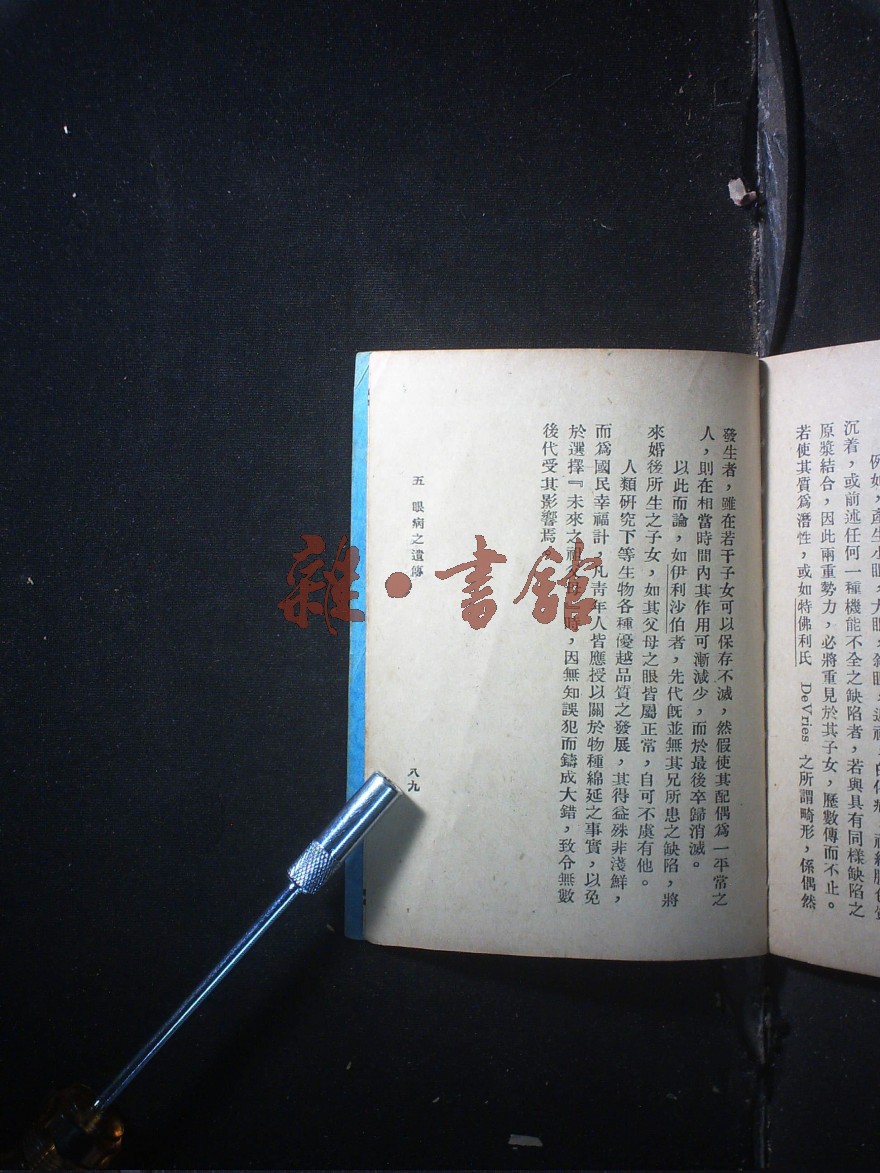 沉着，或前述任何一種機能不全之缺陷者，若與具有同樣缺陷之
原漿結合，因此兩重勢力，必將重見於其子女，歷數傳而不止。
若使其質爲潛性，或如特佛利氏 DeVries 之所謂畸形，係偶然
發生者，雖在若干子女可以保存不滅，然假使其配偶爲一平常之
人，則在相當時間內其作用可漸減少，而於最後卒歸消滅。
以此而論，如伊利沙伯者，先代旣並無其兄所患之缺陷，將
來婚後所生之子女，如其父母之眼皆屬正常，自可不虞有他。
人類研究下等生物各種優越品質之發展，其得益殊非淺鮮，
而爲國民幸福計，凡青年人皆應授以關於物種綿延之事實，以免
於選擇『未來之祖父母』時，因無知誤犯而鑄成大錯，致令無數
後代受其影響焉。
五 眼病之遺傳
八九
雜·書館